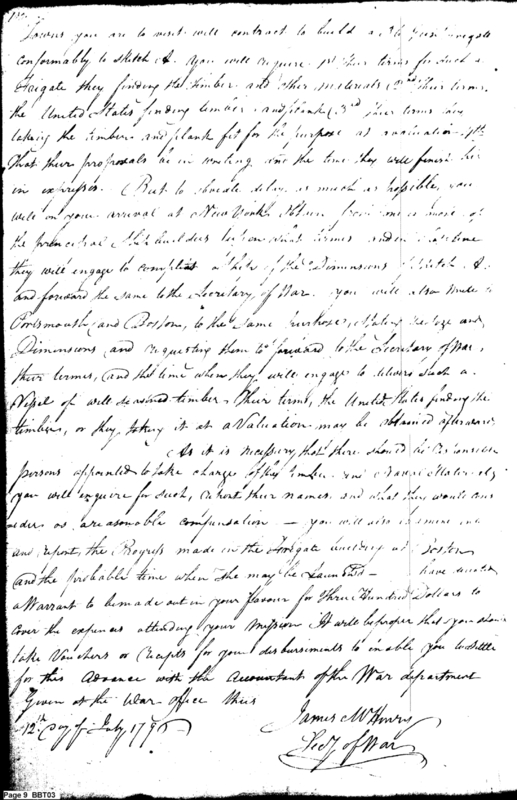 Towns you are to visit will contract to build a 36 Gun Frigate
conformably to Sketch A. You will require 1st their terms for such a
Frigate they finding the timber and other materials 2nd Their terms
the United States finding timber and plank 3rd Their terms they
taking the timber and plank fit for the purpose at valuation 4th
That their proposals be in writing and the time they will finish her
in expressed. But to obviate delay as much as possible, you
will on your arrival at New York obtain from one or more of
the principal Ship builders upon what terms and in what time
they will engage to complete a Ship of the Dimensions Sketch A.
and forward the same to the Secretary of War. You will also write to
Portsmouth and Boston, to the same purpose, stating and
Dimensions and requesting them to forward to the Secretary of War,
their termes, and the time when they will engage to deliver such a
Vessel of well seasoned timber. Their terms, the United States finding the
timber, or they taking it at a Valuation may be obtained afterward
As it is necessary that there should be
persons appointed to take charge of the timber and Naval Materials
you will enquire for such, report their names and what they would con
sider as a reasonable compensation — you will also examine into
and report, the Progress made in the Frigate building at Boston
and the probable time when She may be Launched — have directed
a Warrant to be made out in your favour for three Hundred Dollars to
cover the expences attending your Mission It will be proper that you should
take Vouchers or receipts for your disbursements to enable you to settle
for this Advance with the Accountant of the War department
Given at the War office this
12th Day of July 1796
James McHenry
Secy of War
Page 9 BBT03